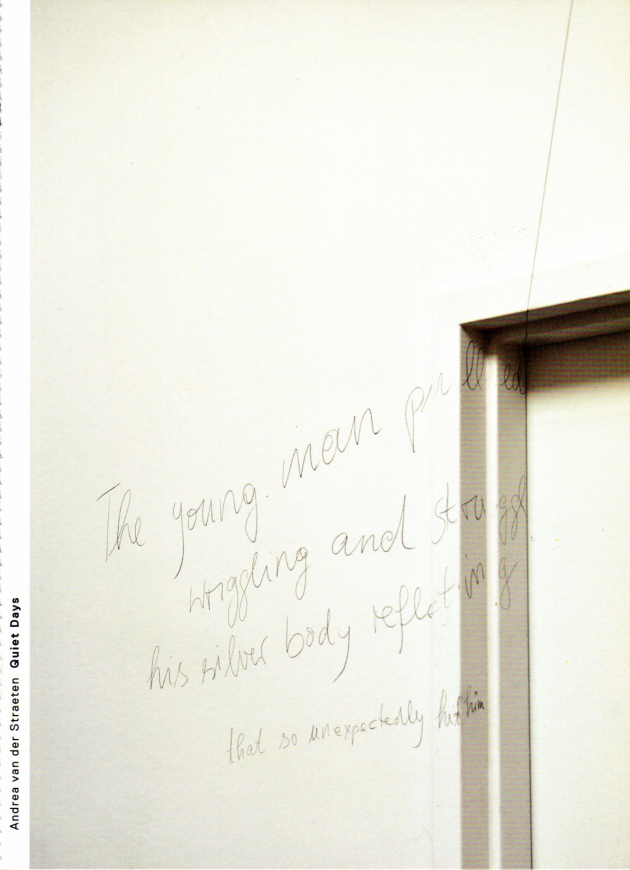 The young man pulled
wriggling and struggl
his silver body reflecting
that so unexpectedly hit him
Andrea van der Straeten Quiet Days